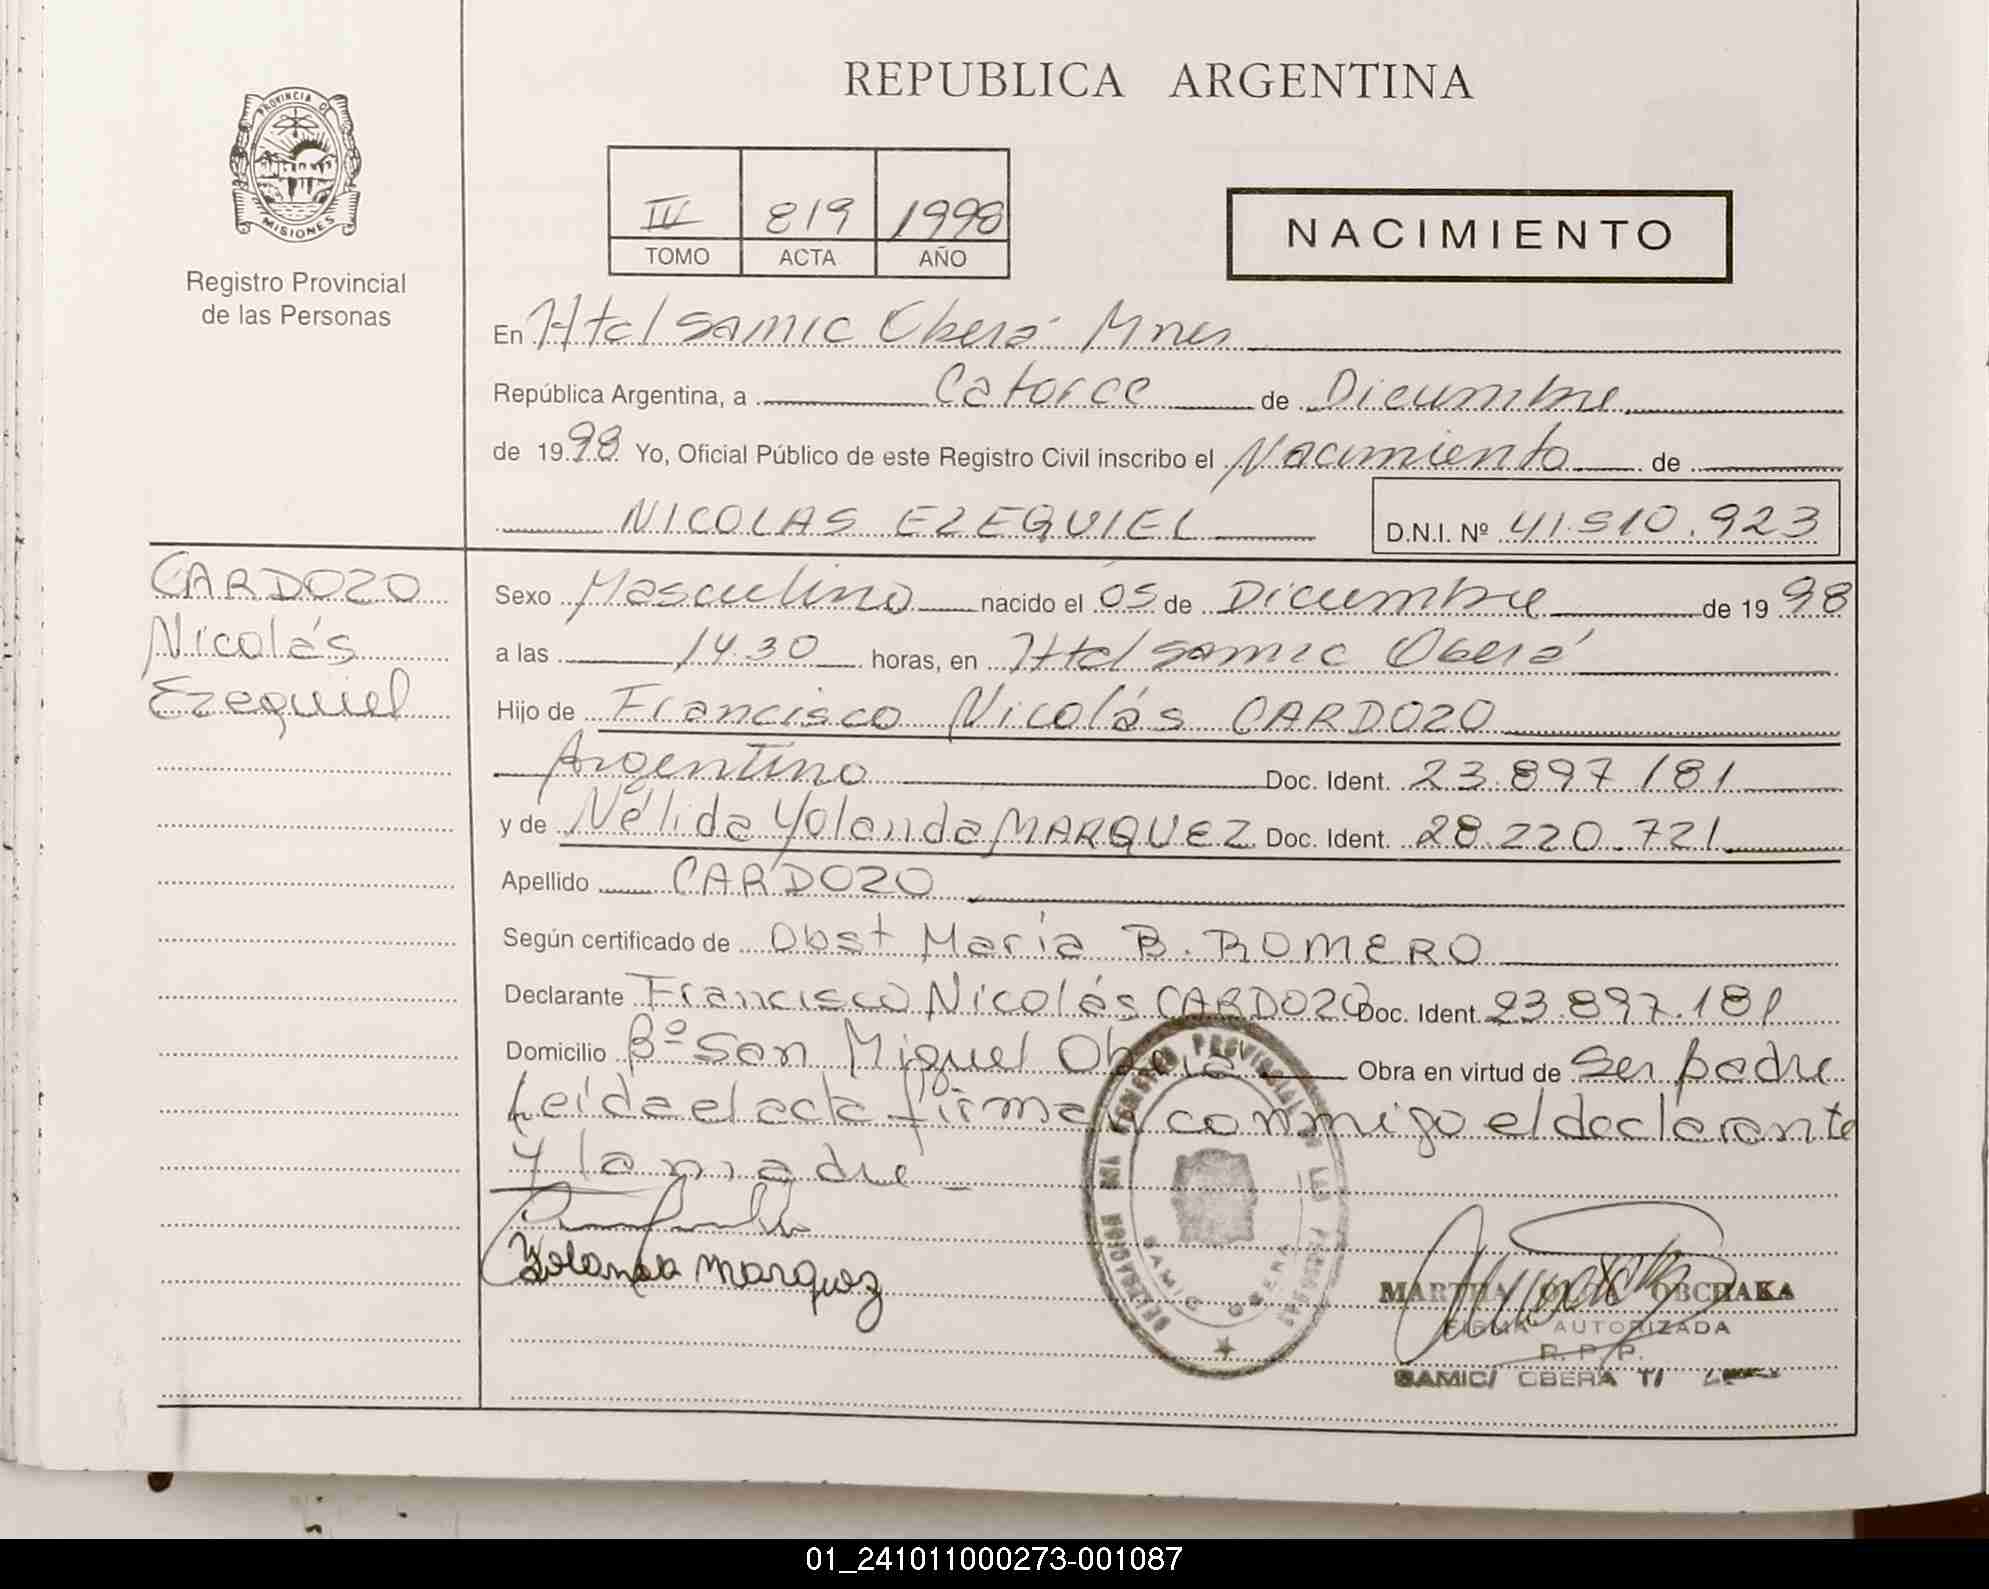 REPUBLICA ARGENTINA
PROVINCIA D
MISIONES
Registro Provincial
de las Personas
IV 819 1998
TOMO ACTA AÑO
NACIMIENTO
En Htal SAMIC Oberá Mnes
República Argentina, a Catorce de Diciembre
de 1998 Yo, Oficial Público de este Registro Civil inscribo el Nacimiento de
NICOLAS EZEQUIEL D.N.I. Nº 41.510.923
CARDOZO
Nicolás
Ezequiel
Sexo Masculino nacido el 05 de Diciembre de 1998
a las 14.30 horas, en Htal SAMIC Oberá
Hijo de Francisco Nicolás CARDOZO
Argentino Doc. Ident. 23.897.181
y de Nélida Yolanda MARQUEZ Doc. Ident. 28.220.721
Apellido CARDOZO
Según certificado de Obst María B. ROMERO
Declarante Francisco Nicolás CARDOZO Doc. Ident. 23.897.181
Domicilio Bº San Miguel Oberá Obra en virtud de ser padre
Leída el acta firman conmigo el declarante
y la madre
Yolanda Marquez
DELEGACION REGISTRO PROVINCIAL DE LAS PERSONAS
SAMIC OBERA
MARTHA OBCHAKA
FIRMA AUTORIZADA
R. P. P.
SAMIC/ OBERA
01_241011000273-001087